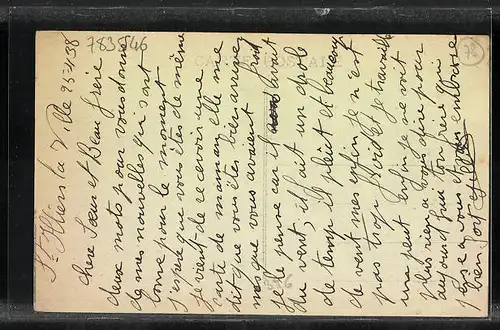 7835546
79
CARTE POSTALE
St Illiers la Ville 25-4-38
chere Sœur et Beau frère
deux mots pour vous donner
de mes nouvelles qui sont
bonne pour le moment
j'espère que vous êtes de même
je vient de recevoir une
carte de maman elle me
dit que vous êtes bien arrivez
mes que vous avaient
je le pense car il fait
du vent, il fait un drole
de temp il pleut et beaucoup
de vent mes enfin je n'est
pas trop froid et je travaille
un peut enfin je ne voit
plus rien a vous dire pour
aujourd'hui ton frère qui
pense a vous et vous embrasse
bien fort